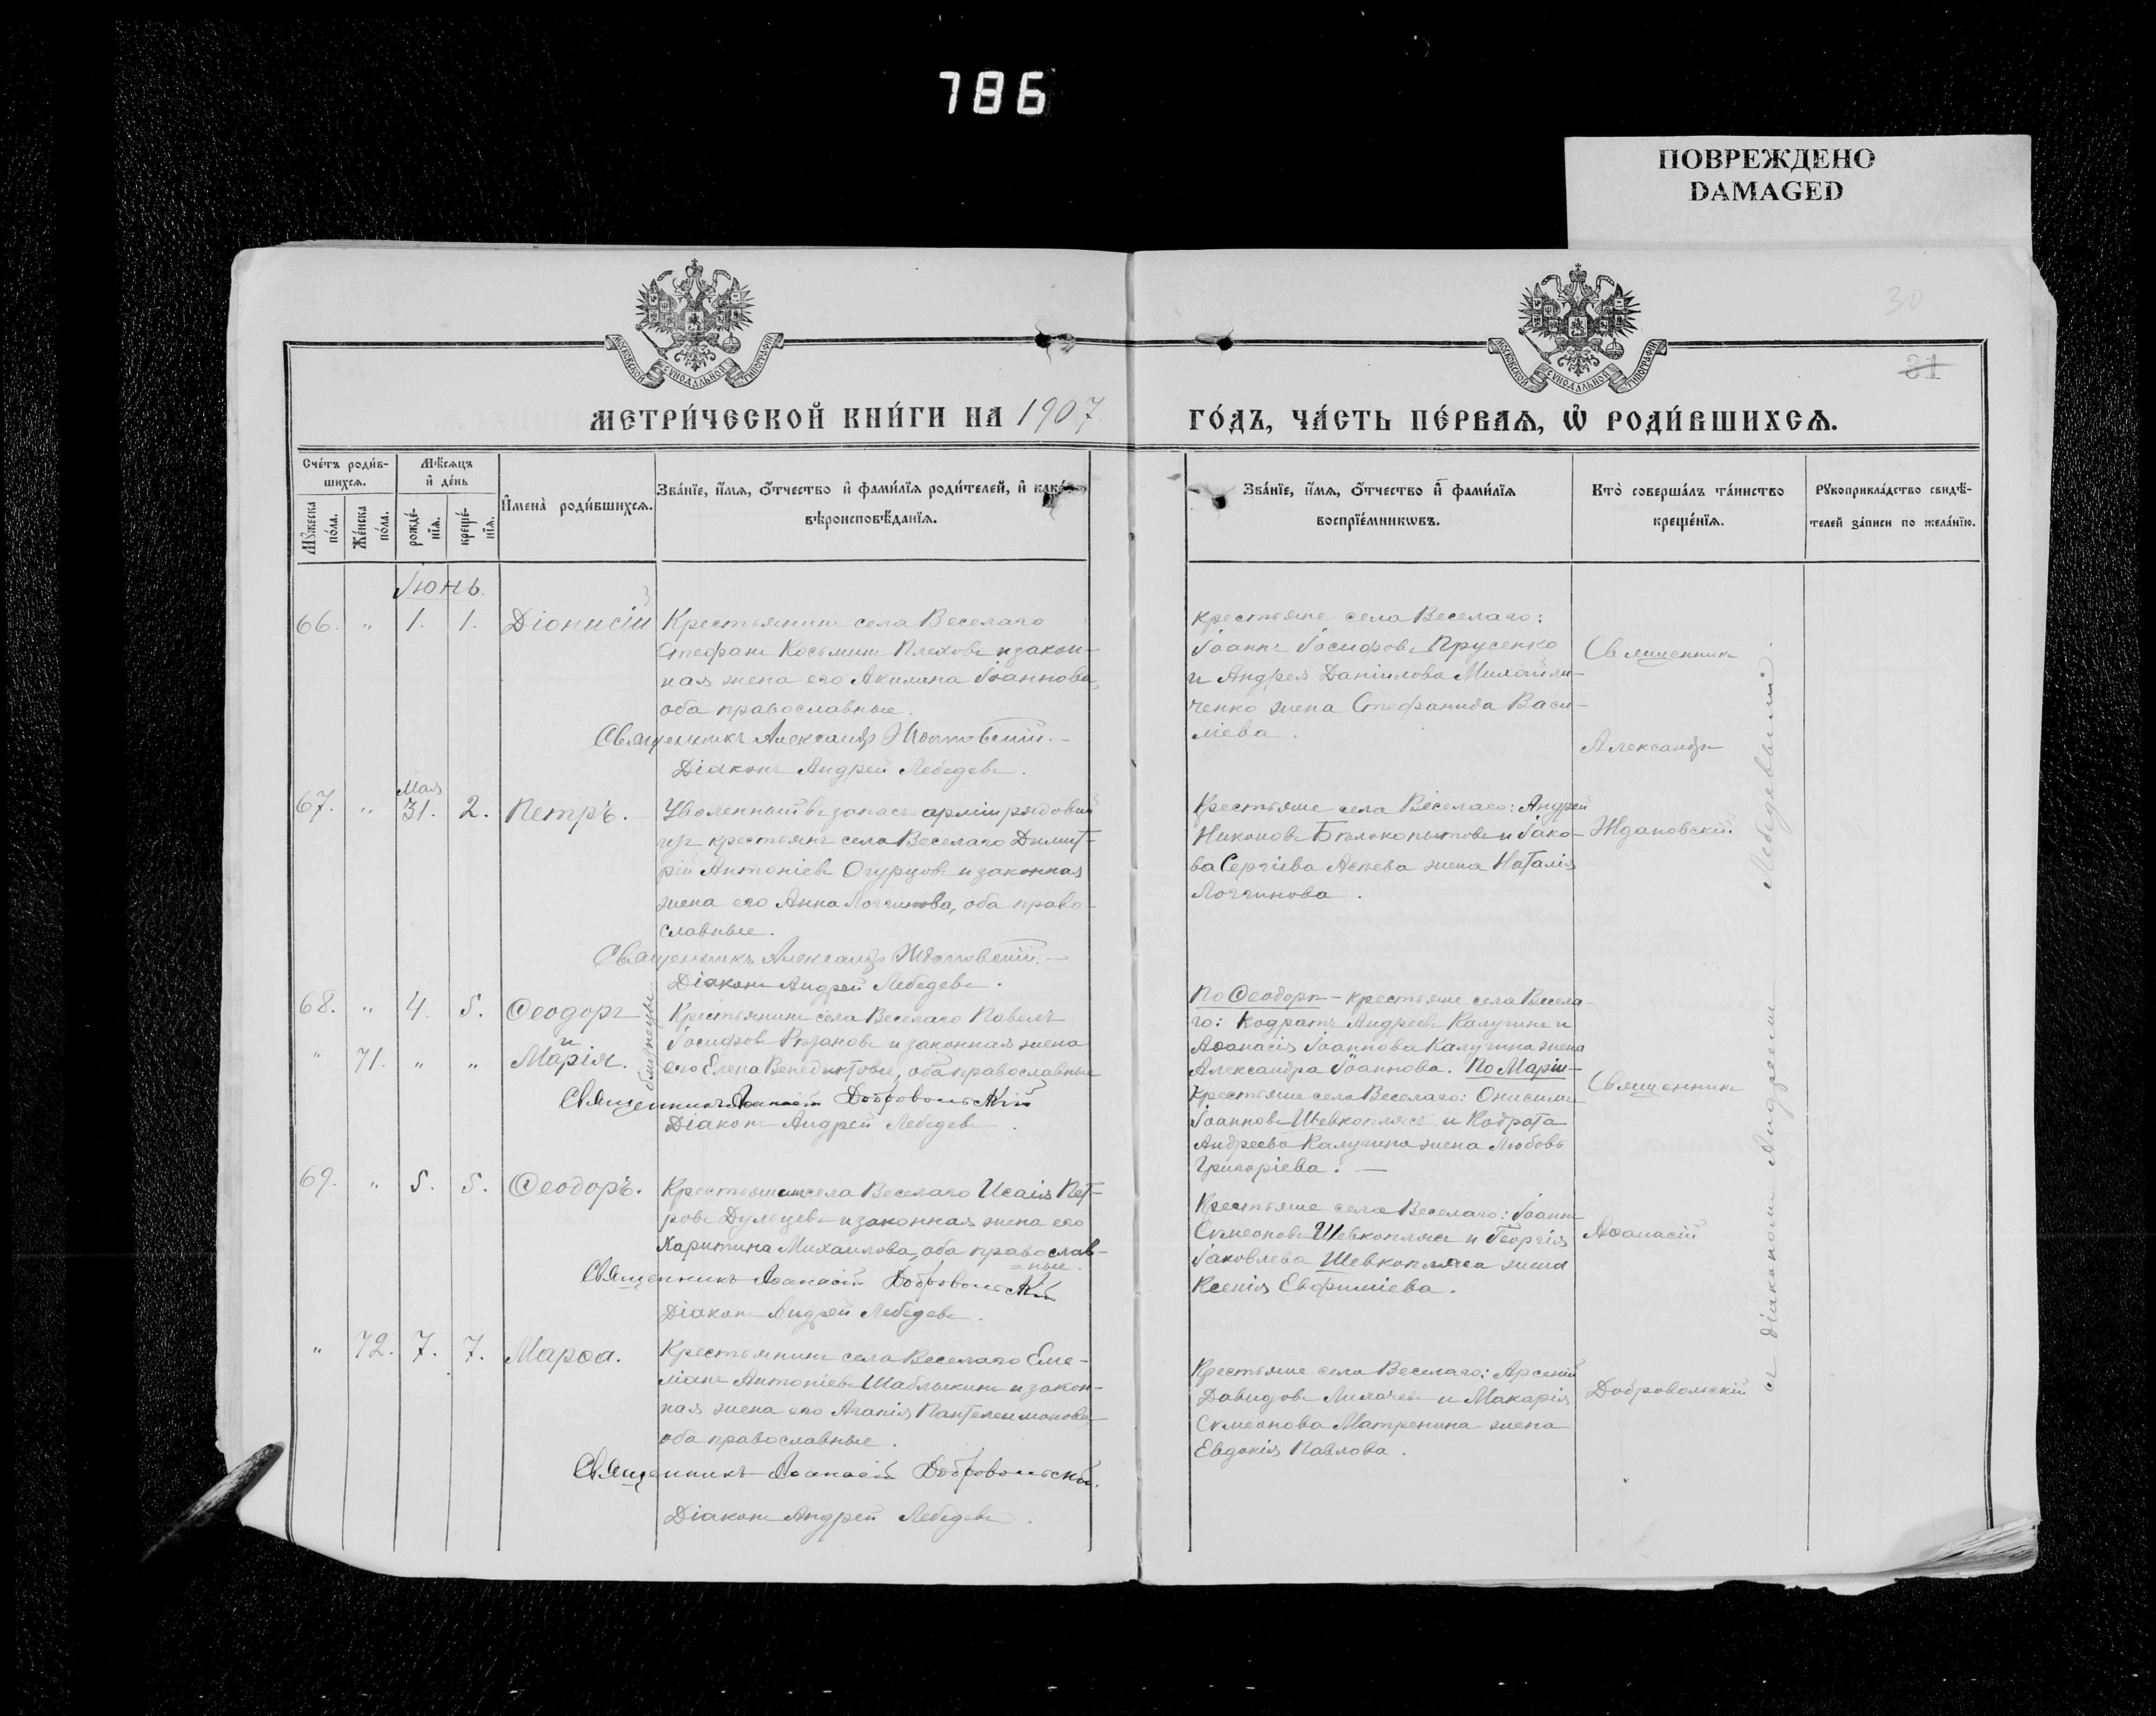 786
ПОВРЕЖДЕНО
DAMAGED
30
31
МОСКОВСКОЙ СѴНОДАЛЬНОЙ ТИПОГРАФІИ
МОСКОВСКОЙ СѴНОДАЛЬНОЙ ТИПОГРАФІИ
МЕТРИ́ЧЕСКОЙ КНИ́ГИ НА 1907.
ГО́ДЪ, ЧА́СТЬ ПЕ́РВАѦ, Ѡ҆ РОДИ́ВШИХСѦ.
Сче́тъ роди́в-
шихсѧ.
Мꙋ́жеска
по́ла.
Же́нска
по́ла.
Мѣ́сѧцъ
и҆ де́нь
рожде́-
нїѧ.
креще́-
нїѧ.
И҆мена̀ роди́вшихсѧ.
Зва́нїе, и҆́мѧ, ѻ҆́тчество и҆ фами́лїѧ роди́телей, и҆ како́-
вѣроисповѣ́данїѧ.
Зва́нїе, и҆́мѧ, ѻ҆́тчество и҆ фами́лїѧ
воспрїе́мникѡвъ.
Кто̀ соверша́лъ та́инство
креще́нїѧ.
Рꙋкоприкла́дство свидѣ́-
телей за́писи по жела́нїю.
Іюнь.
66. " 1. 1. Діонисій
Крестьянинъ села Веселаго
Стефанъ Косьминъ Плеховъ и закон-
ная жена его Акилина Іоаннова,
оба православные.
Священникъ Александръ Ждановскій.
Діаконъ Андрей Лебедевъ.
крестьяне села Веселаго:
Іоаннъ Іосифовъ Прусенко
и Андрея Даніилова Михайли-
ченко жена Стефанида Васи-
ліева.
Священникъ
Александръ
Ждановскій.
67. " Мая 31. 2. Петръ.
Уволенный въ запасъ арміи рядовый
изъ крестьянъ села Веселаго Димит-
рій Антоніевъ Огурцовъ и законная
жена его Анна Логгинова, оба право-
славные.
Священникъ Александръ Ждановскій.
Діаконъ Андрей Лебедевъ.
Крестьяне села Веселаго: Андрей
Никоновъ Бѣлокопытовъ и Іако-
ва Сергіева Асѣева жена Наталія
Логгинова.
68. " 4. 5. Ѳеодоръ
и
" 71. " " Марія.
близнецы
Крестьянинъ села Веселаго Павелъ
Іосифовъ Рязановъ и законная жена
его Елена Венедиктова, оба православные
Священникъ Аѳанасій Добровольскій
Діаконъ Андрей Лебедевъ.
По Ѳеодорѣ - крестьяне села Весела-
го: Кодратъ Андреевъ Калугинъ и
Аѳанасія Іоаннова Калугина жена
Александра Іоаннова. По Маріи -
Крестьяне села Веселаго: Онисимъ
Іоанновъ Шевкоплясъ и Кодрата
Андреева Калугина жена Любовь
Григоріева. —
Священникъ
Аѳанасій
Добровольскій
съ діакономъ Андреемъ Лебедевымъ.
69. " 5. 5. Ѳеодоръ.
Крестьянинъ села Веселаго Исаія Пет-
ровъ Дульцевъ и законная жена его
Харитина Михаилова, оба православ-
=ные.
Священникъ Аѳанасій Добровольскій
Діаконъ Андрей Лебедевъ.
Крестьяне села Веселаго: Іоаннъ
Сѵмеоновъ Шевкоплясъ и Георгія
Іаковлева Шевкопляса жена
Ксенія Евфиміева.
" 72. 7. 7. Марѳа.
Крестьянинъ села Веселаго Еме-
ліанъ Антоніевъ Шаблыкинъ и закон-
ная жена его Агапія Пантелеимонова
оба православные.
Священникъ Аѳанасій Добровольскій.
Діаконъ Андрей Лебедевъ.
Крестьяне села Веселаго: Арсеній
Давидовъ Лихачевъ и Макарія
Сѵмеонова Матренина жена
Евдокія Павлова.